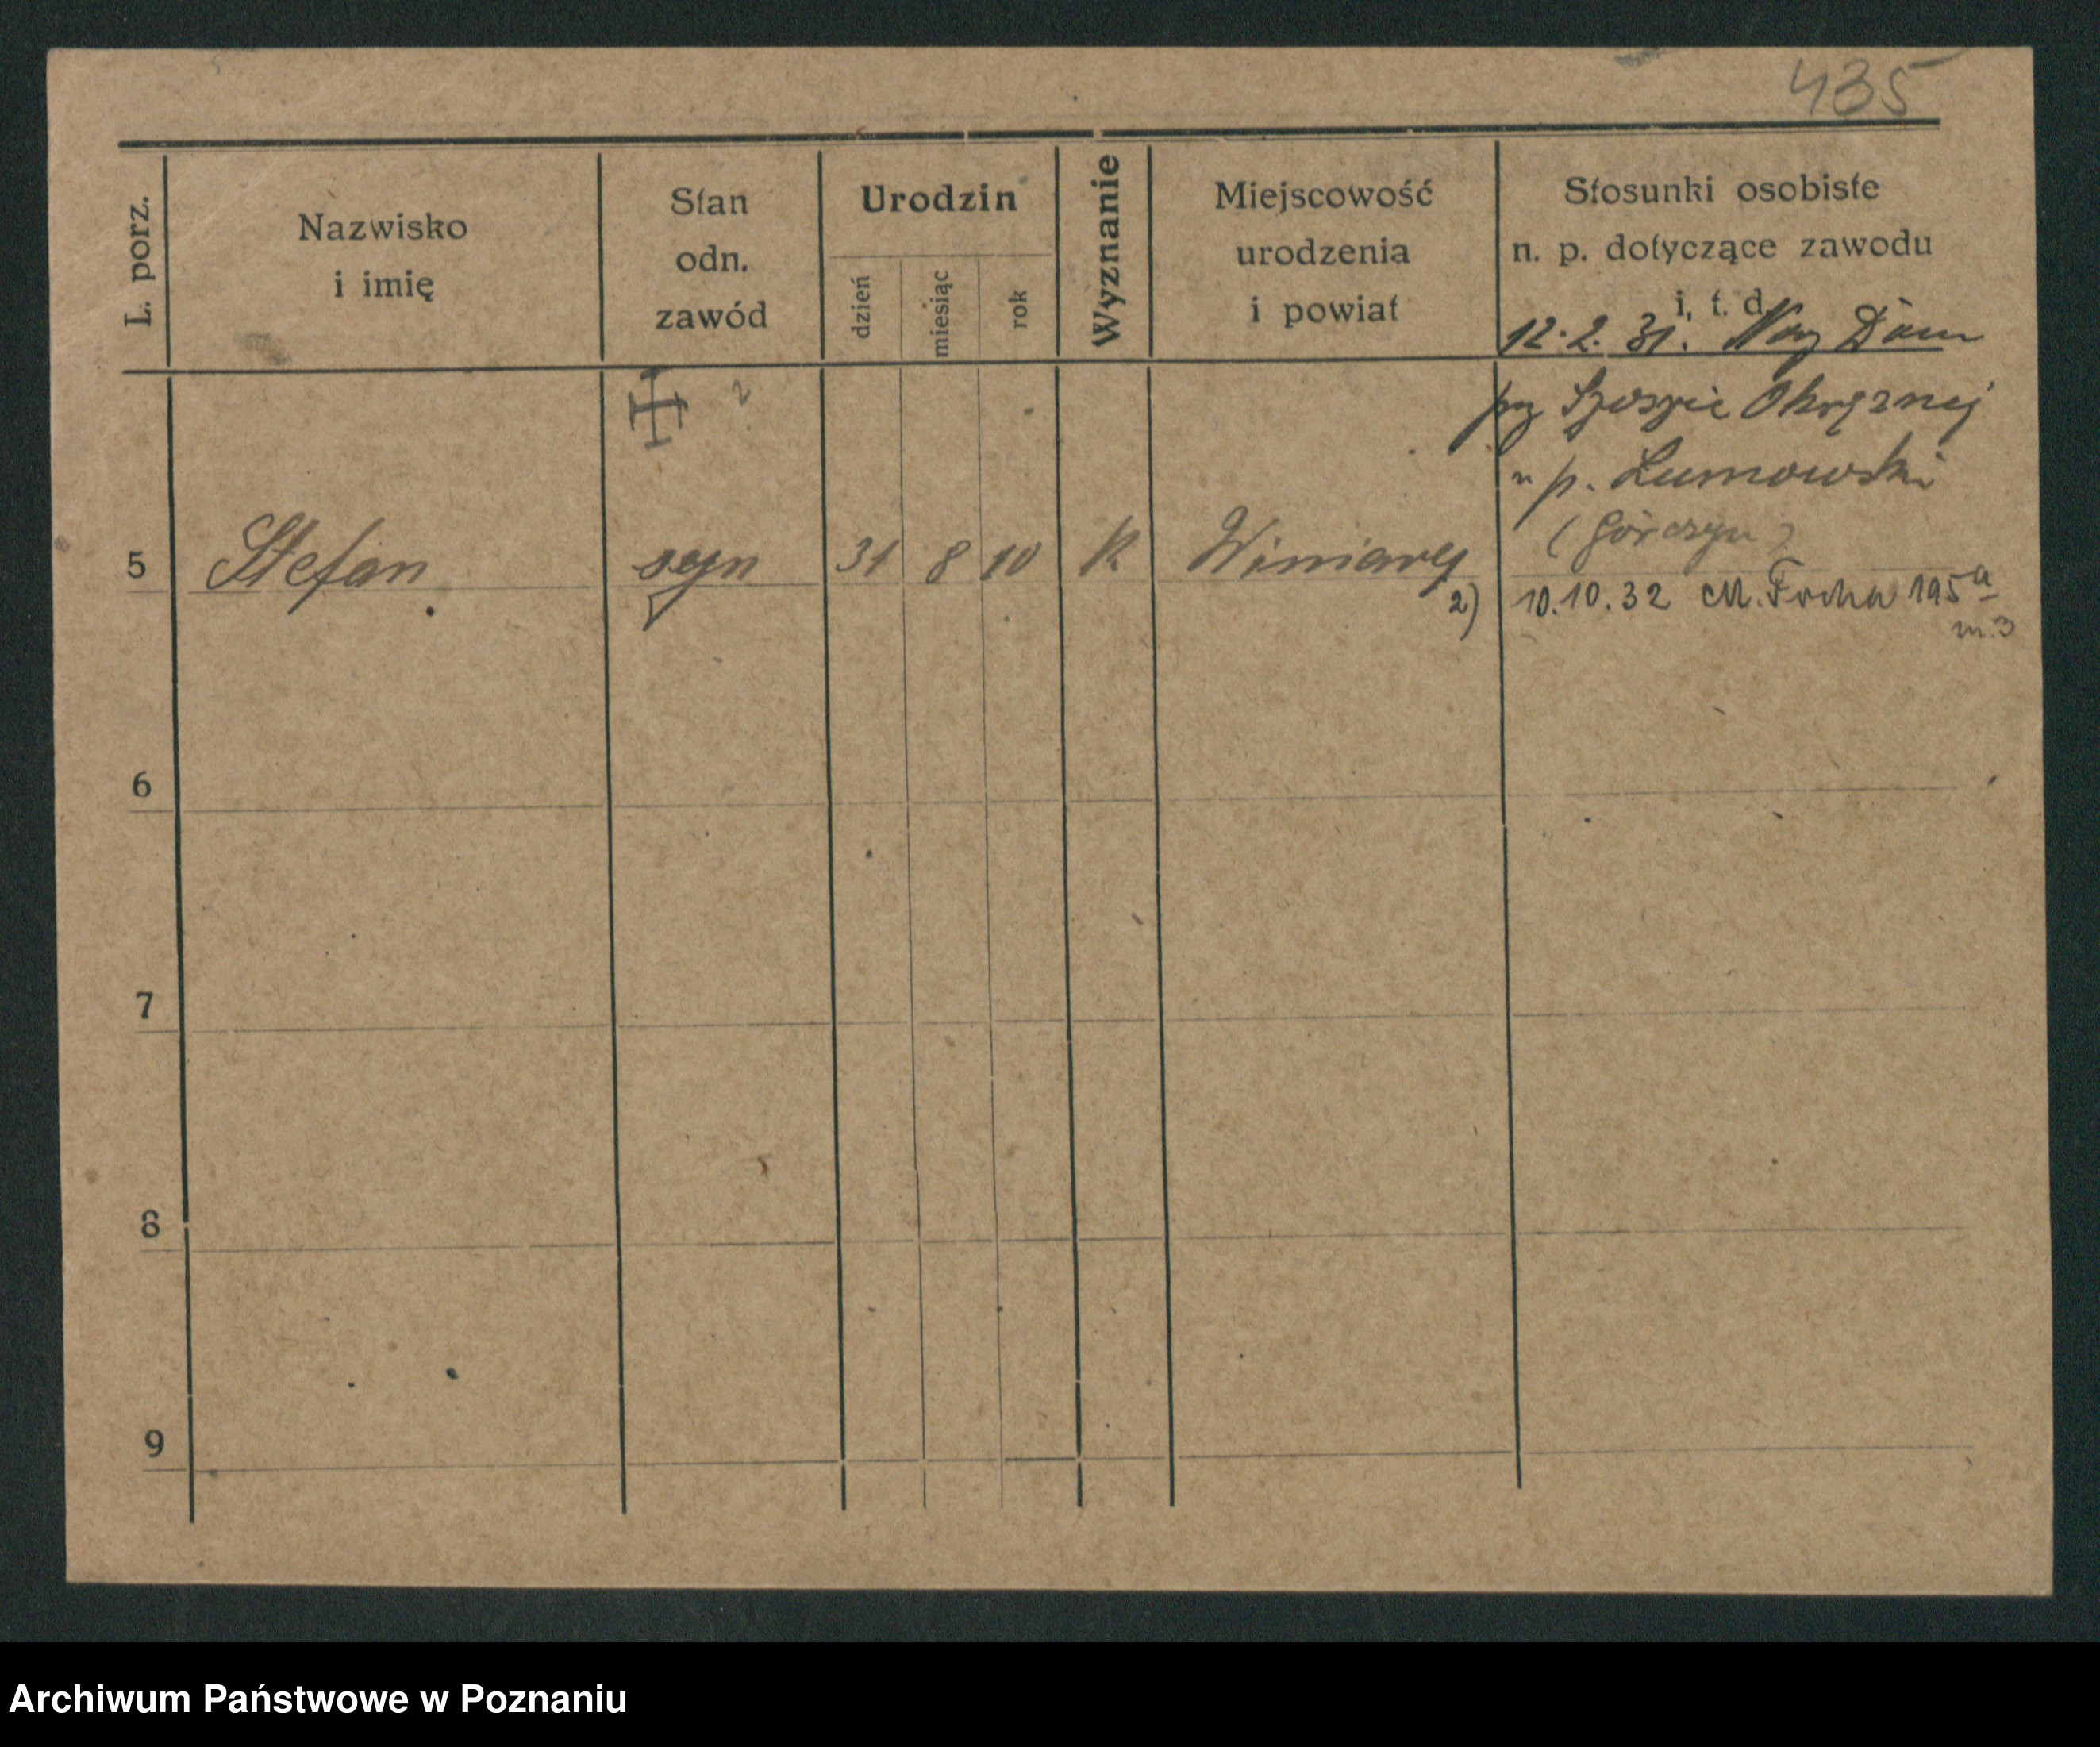 435
L. porz.
Nazwisko
i imię
Stan
odn.
zawód
Urodzin
dzień
miesiąc
rok
Wyznanie
Miejscowość
urodzenia
i powiat
Stosunki osobiste
n. p. dotyczące zawodu
i, t. d.
12.2.31. Dom
przy Szosie Okrężnej
u p. Lumowski
(Górczyn)
5 Stefan syn 31 8 10 K Winiary
2) 10.10.32 M. Focha 195a
m.3
6
7
8
9
Archiwum Państwowe w Poznaniu